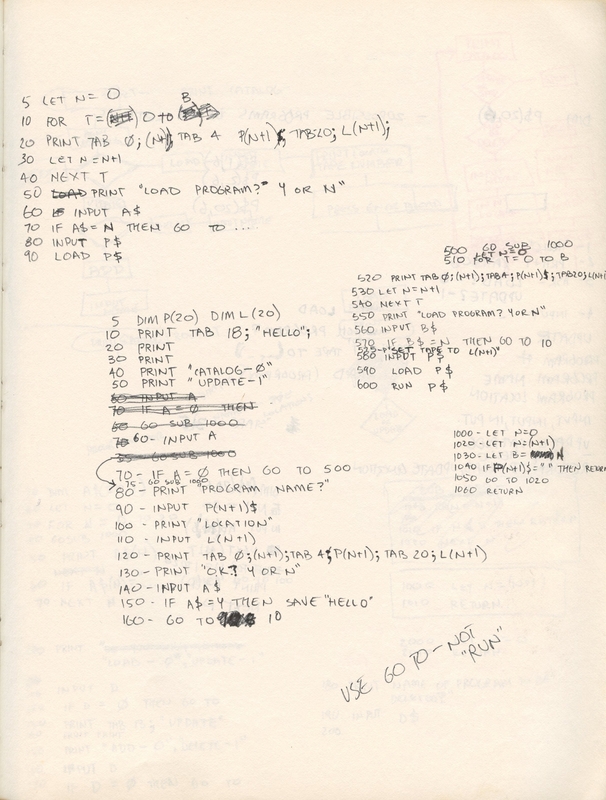 5 LET N= 0
B
10 FOR T= 0 TO
20 PRINT TAB 0; (N+1), TAB 4 P(N+1)$; TAB20; L(N+1);
30 LET N=N+1
40 NEXT T
50 LOAD PRINT "LOAD PROGRAM? Y OR N"
60 IF INPUT A$
70 IF A$= N THEN GO TO ...
80 INPUT P$
90 LOAD P$
500 GO SUB 1000
505 LET N=0
510 FOR T=0 TO B
520 PRINT TAB 0; (N+1); TAB4; P(N+1)$; TAB20; L(N+1)
530 LET N=N+1
540 NEXT T
550 PRINT "LOAD PROGRAM? Y OR N"
560 INPUT B$
570 IF B$ = N THEN GO TO 10
575 P "SET TAPE TO L(N+1)"
580 INPUT P$
590 LOAD P$
600 RUN P$
5 DIM P(20) DIM L(20)
10 PRINT TAB 18; "HELLO";
20 PRINT
30 PRINT
40 PRINT "CATALOG-0"
50 PRINT "UPDATE-1"
60 INPUT A
70 IF A = 0 THEN
60 GO SUB 1000
70 60- INPUT A
75 GO SUB 1000
70- IF A = 0 THEN GO TO 500
75- GO SUB 1000
80- PRINT "PROGRAM NAME?"
90- INPUT P(N+1)$
100- PRINT "LOCATION"
110- INPUT L(N+1)
120- PRINT TAB 0; (N+1); TAB 4; P(N+1); TAB 20; L(N+1)
130- PRINT "OK? Y OR N"
140- INPUT A$
150- IF A$ = Y THEN SAVE "HELLO"
160- GO TO 10
1000- LET N=0
1020- LET N=(N+1)
1030- LET B= N
1040 IF P(N+1)$=" " THEN RETURN
1050 GO TO 1020
1060 RETURN
USE GO TO - NOT
"RUN"